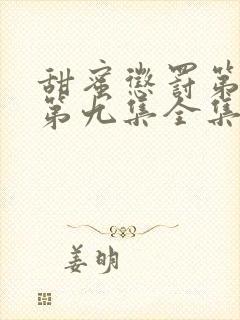 甜蜜惩罚第
第九集全集
姜明